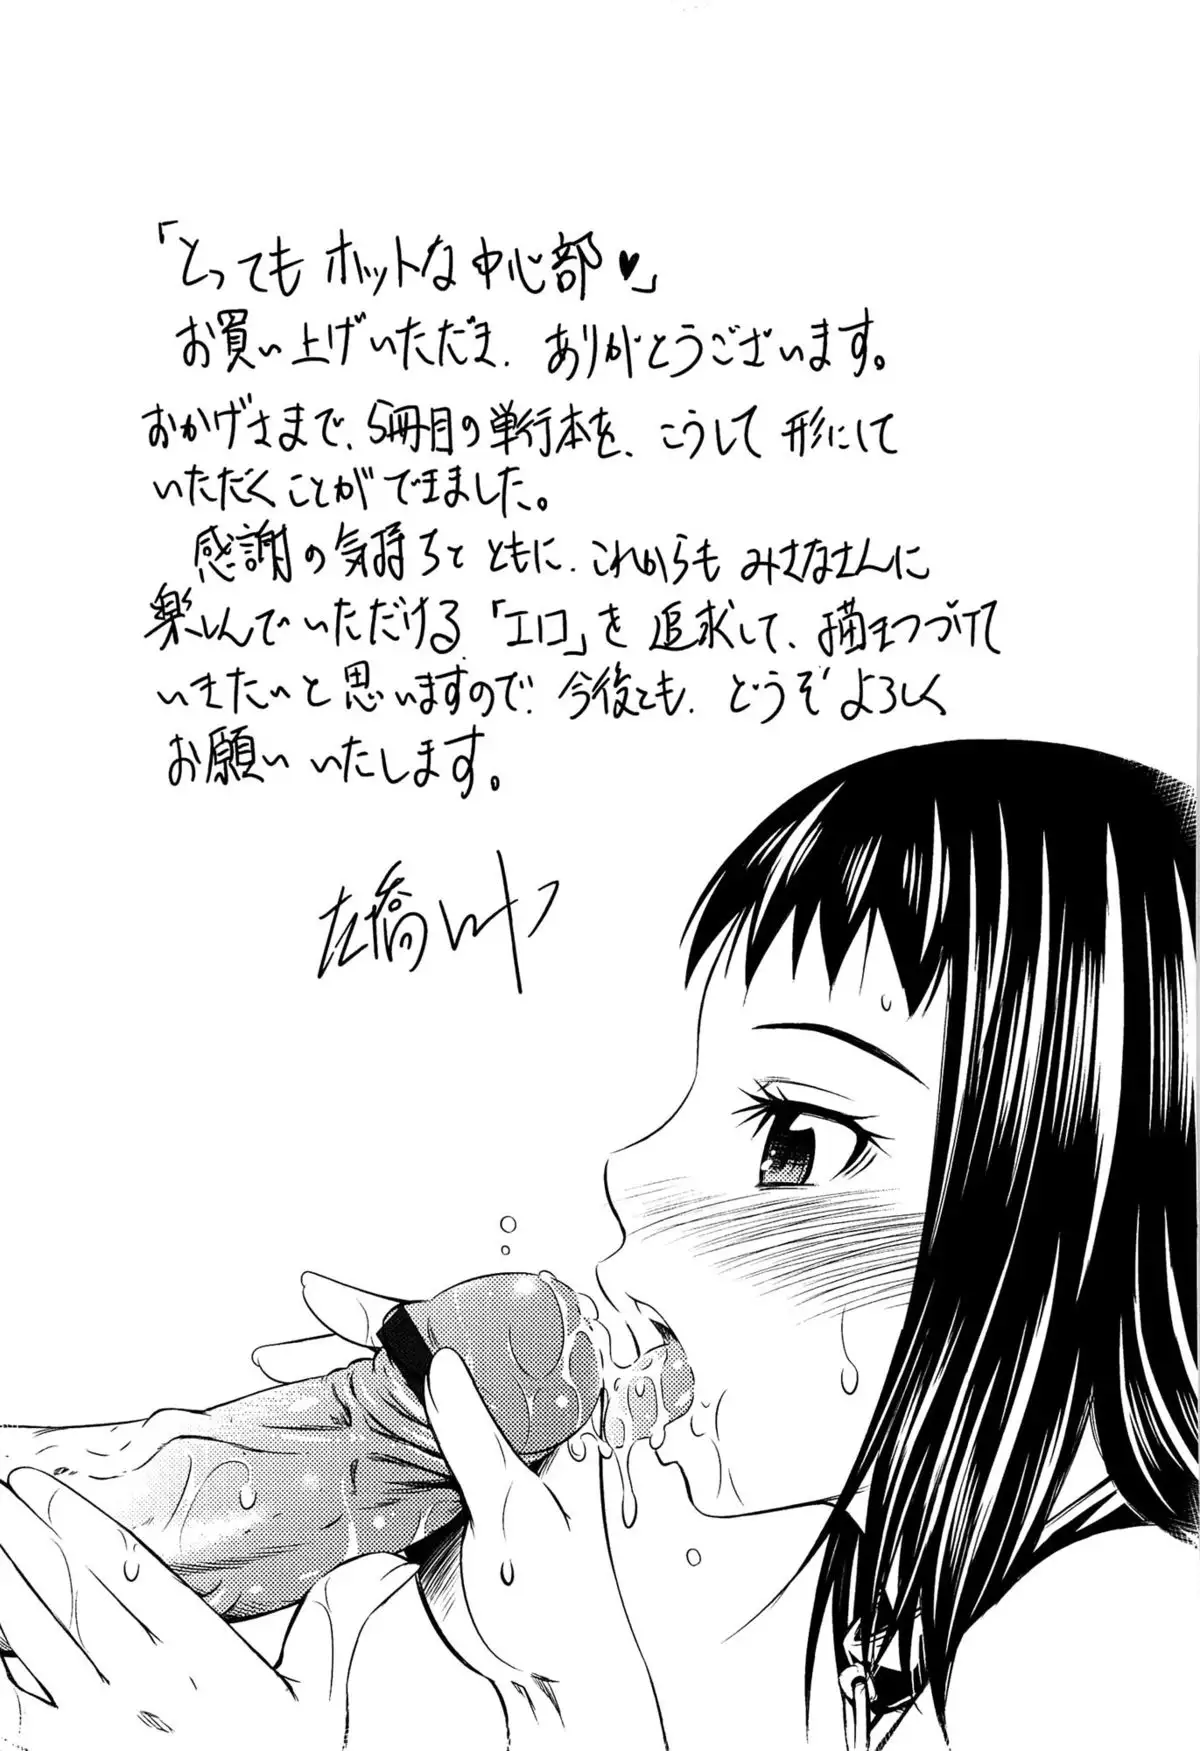 「とってもホットな中心部♥」
お買い上げいただき、ありがとうございます。
おかげさまで、5冊目の単行本を、こうして形にして
いただくことができました。
感謝の気持ちとともに、これからもみなさんに
楽しんでいただける「エロ」を追求して、描きつづけて
いきたいと思いますので、今後とも、どうぞよろしく
お願いいたします。